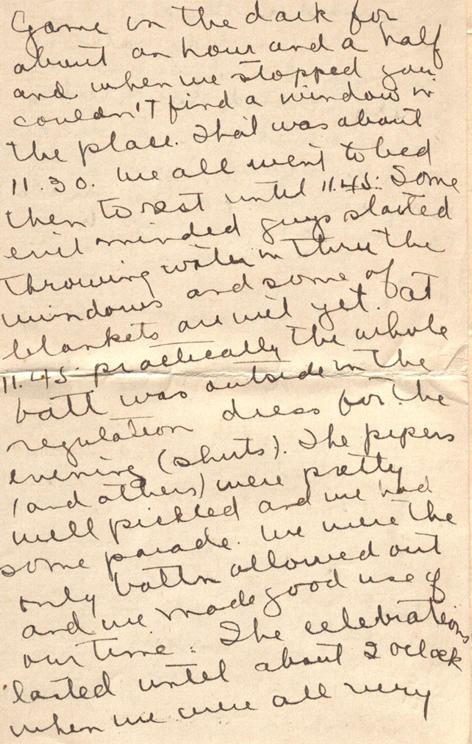 Game in the dark for
about an hour and a half
and when we stopped you
couldn't find a window in
the place. That was about
11.30. We all went to bed
then to rest until 11.45. Some
evil minded guys started
throwing water in thru the
windows and some of
blankets are wet yet. at
11.45. practically the whole
batt was outside in the
regulation dress for the
evening (shirts). The pipers
(and others) were pretty
well pickled and we had
some parade. We were the
only battn allowed out
and we made good use of
our time. The celebrations
lasted until about 2 oclock
when we were all very